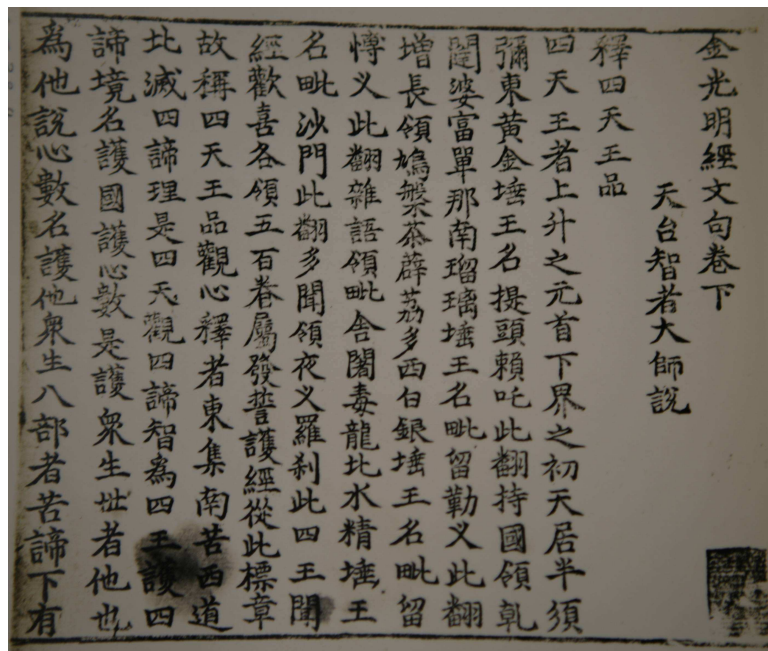 金光明經文句卷下
天台智者大師說
釋四天王品
四天王者上升之元首下界之初天居半須
彌東黃金埵王名提頭賴吒此翻持國領乹
闥婆富單那南瑠璃埵王名毗留勒义此翻
增長領鳩槃茶薜荔多西白銀埵王名毗留
愽义此翻雜語領毗舍闍毒龍北水精埵王
名毗沙門此翻多聞領夜义羅刹此四王聞
經歡喜各領五百眷屬發誓護經從此標章
故稱四天王品觀心釋者東集南苦西道
北滅四諦理是四天觀四諦智為四王護四
諦境名護國護心數是護衆生世者他也
為他說心數名護他衆生八部者苦諦下有